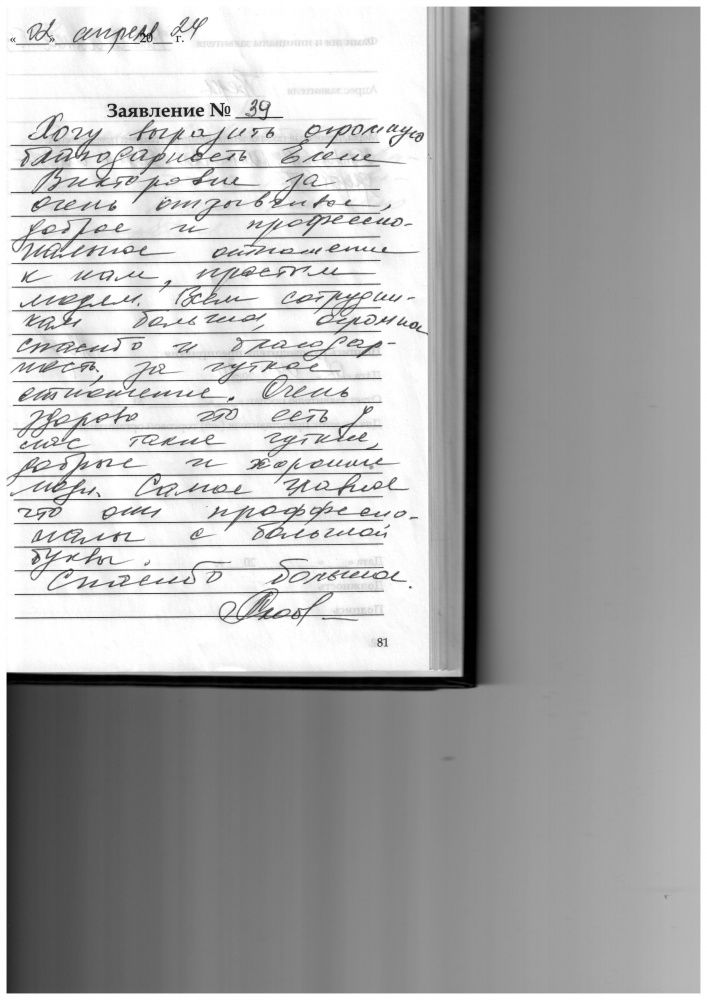 «02» апреля 2024 г.
Заявление № 39
Хочу выразить огромную
благодарность Елене
Викторовне за
очень отзывчивое,
доброе и професси-
нальное отношение
к нам, простым
людям. Всем сотрудни-
кам большое, огромное
спасибо и благодар-
ность, за чуткое
отношение. Очень
здорово что есть у
нас такие чуткие,
добрые и хорошие
люди. Самое главное
что они проффессио-
налы с большой
буквы.
Спасибо большое.
81